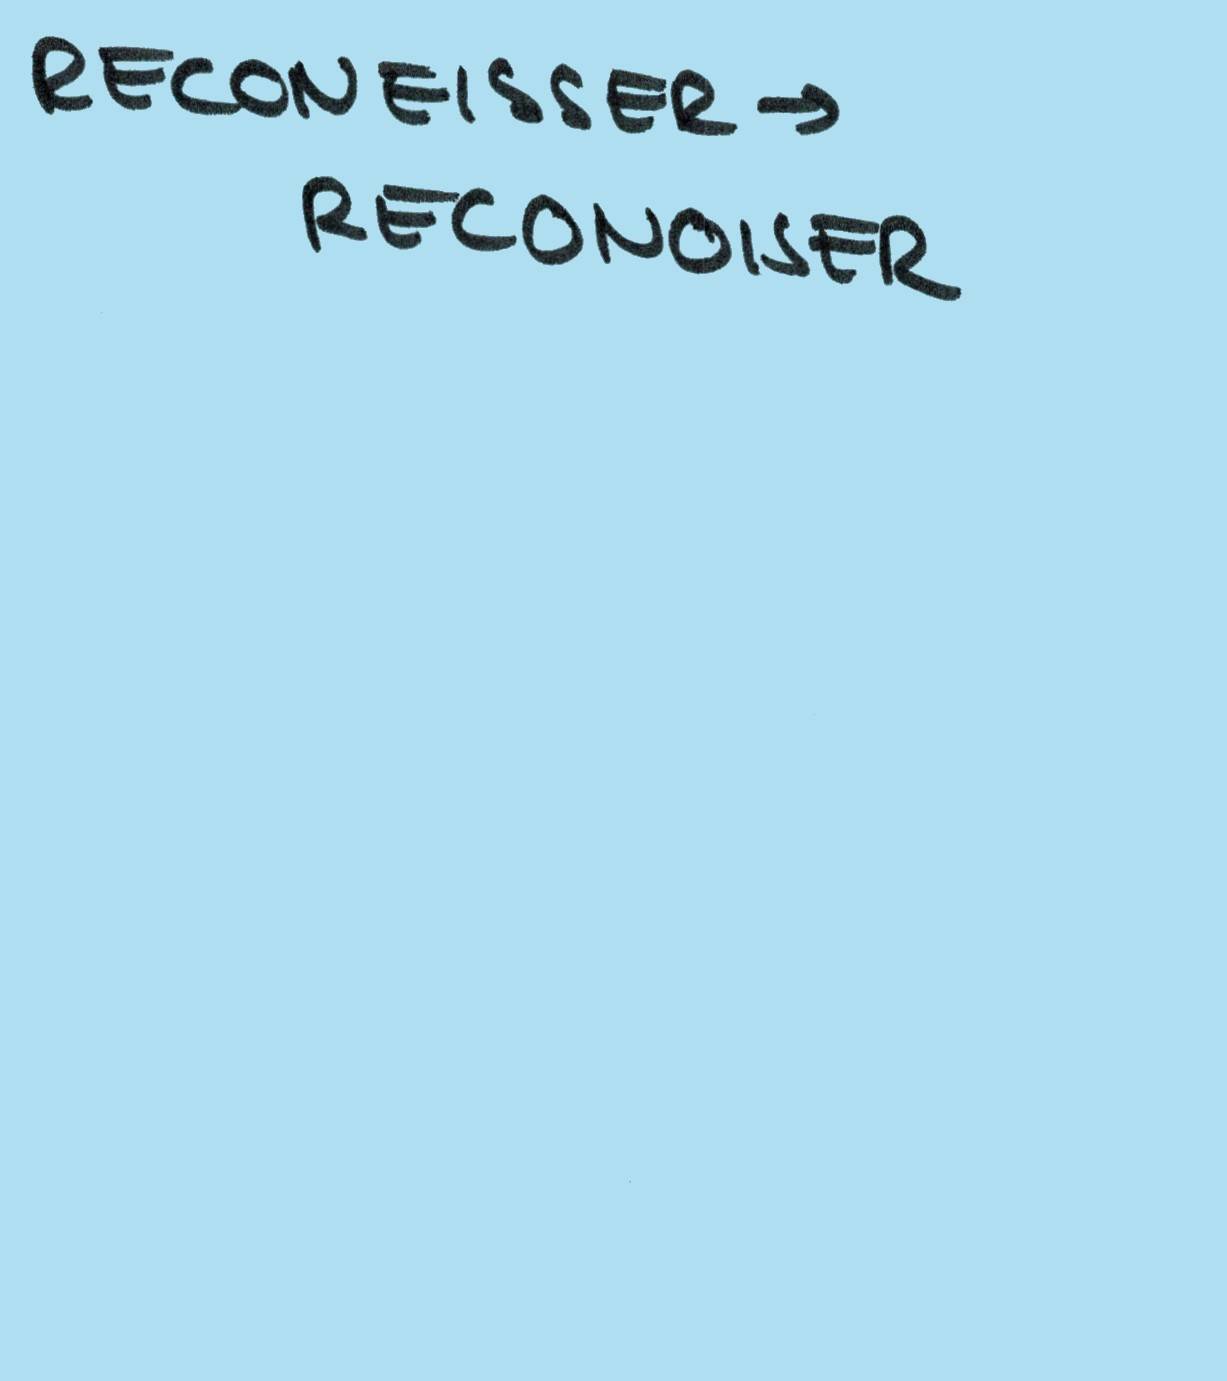 RECONEISSER →
RECONOISER